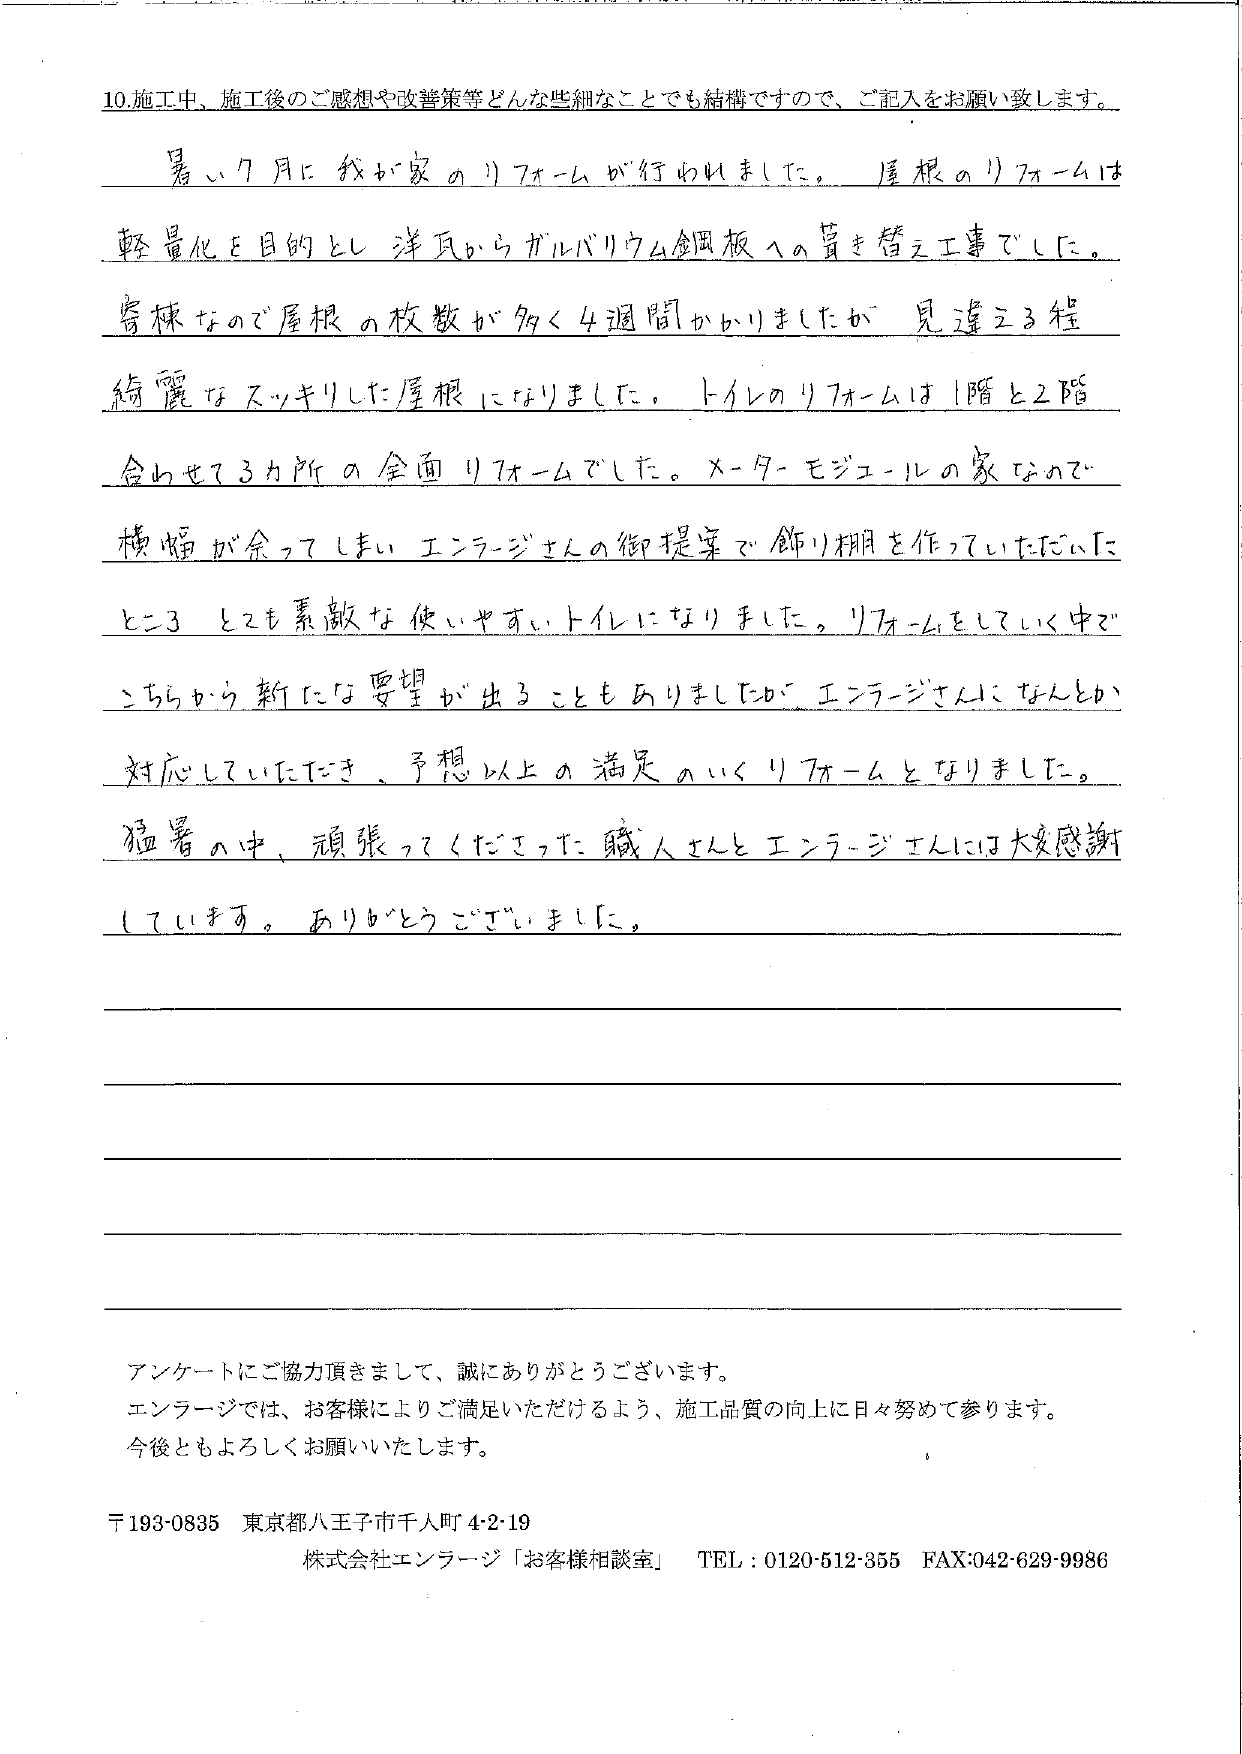 10.施工中、施工後のご感想や改善策等どんな些細なことでも結構ですので、ご記入をお願い致します。
暑い7月に我が家のリフォームが行われました。 屋根のリフォームは
軽量化を目的とし 洋瓦からガルバリウム鋼板への葺き替え工事でした。
寄棟なので屋根の枚数が多く4週間かかりましたが 見違える程
綺麗なスッキリした屋根になりました。 トイレのリフォームは1階と2階
合わせて3カ所の全面リフォームでした。メーターモジュールの家なので
横幅が余ってしまい エンラージさんの御提案で飾り棚を作っていただいた
ところ とても素敵な使いやすいトイレになりました。リフォームをしていく中で
こちらから新たな要望が出ることもありましたが エンラージさんになんとか
対応していただき、予想以上の満足のいくリフォームとなりました。
猛暑の中、頑張ってくださった職人さんとエンラージさんには大変感謝
しています。 ありがとうございました。
アンケートにご協力頂きまして、誠にありがとうございます。
エンラージでは、お客様によりご満足いただけるよう、施工品質の向上に日々努めて参ります。
今後ともよろしくお願いいたします。
〒193-0835 東京都八王子市千人町 4-2-19
株式会社エンラージ「お客様相談室」 TEL：0120-512-355 FAX:042-629-9986